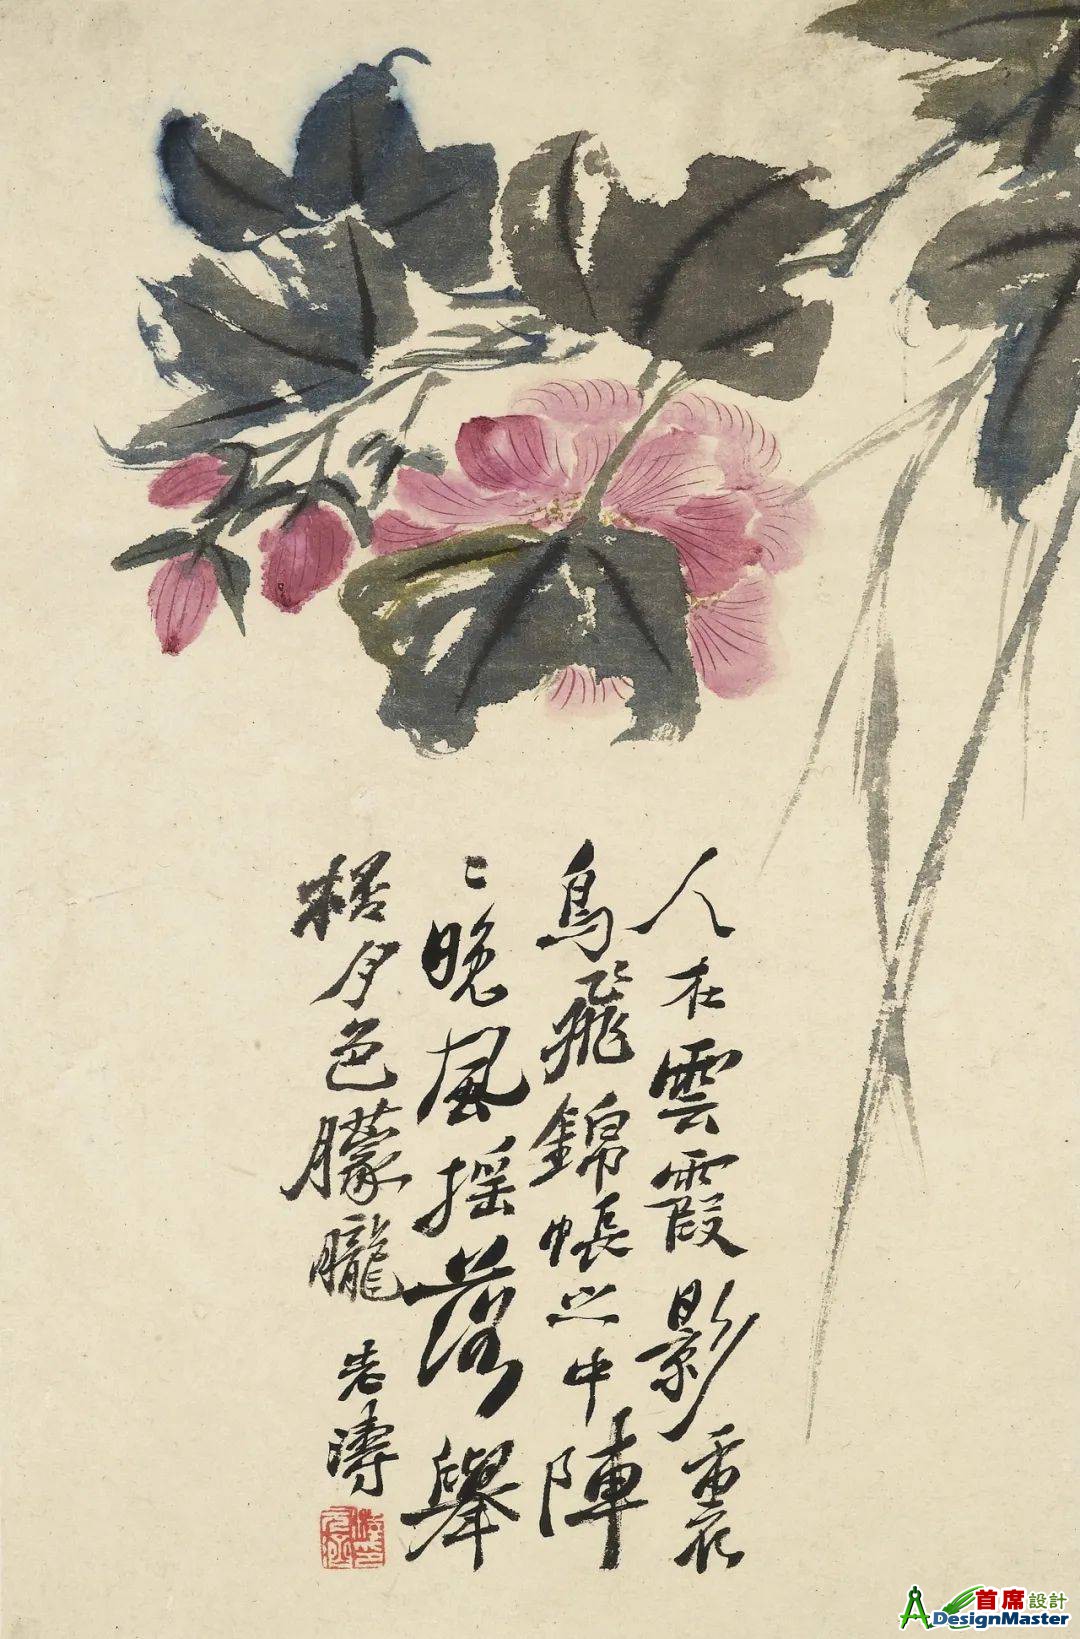 人在雲霞影裏
鳥飛錦帳之中陣
〻晚風摇落舉
桮月色朦朧
老濤
首席設計
DesignMaster